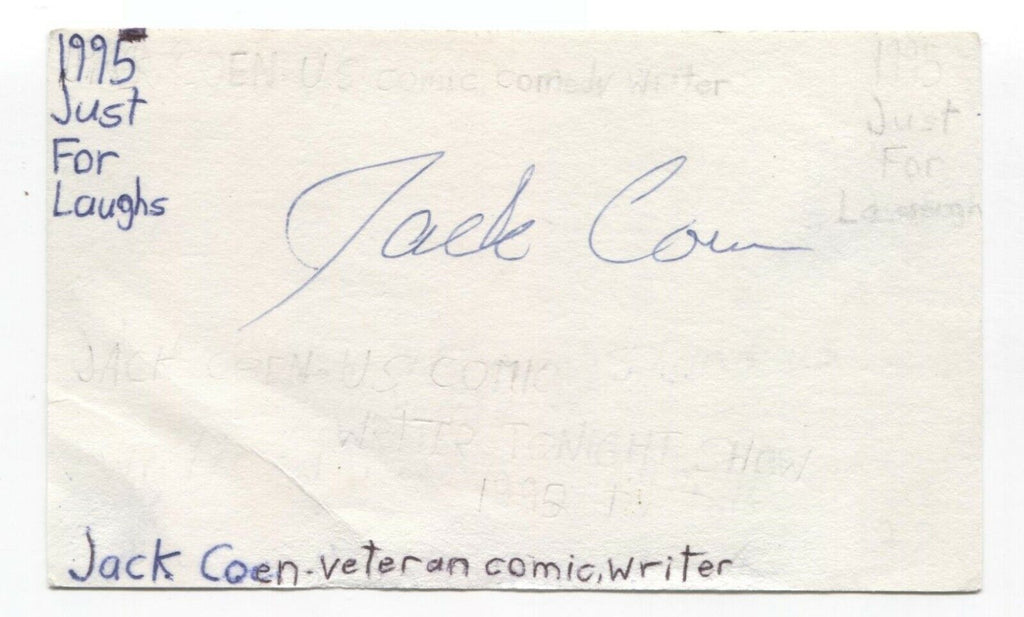 1995
Just
For
Laughs
COEN U.S comic, comedy writer
1995
Just
For
Jack Coen
JACK COEN-U.S COMIC
TONIGHT SHOW
Jack Coen-veteran comic,writer